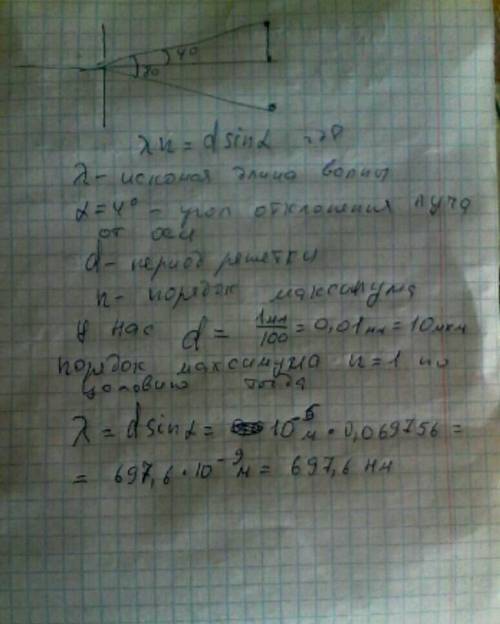 4°
8°
λn = d sinα => 
λ - искомая длина волны
α = 4° - угол отклонения луча
от оси
d - период решетки
n - порядок максимума
у нас d = 1мм/100 = 0,01мм = 10мкм
порядок максимума n = 1 по
условию тогда
λ = d sinα = 10⁻⁵м · 0,069756 =
= 697,6 · 10⁻⁹м = 697,6 нм